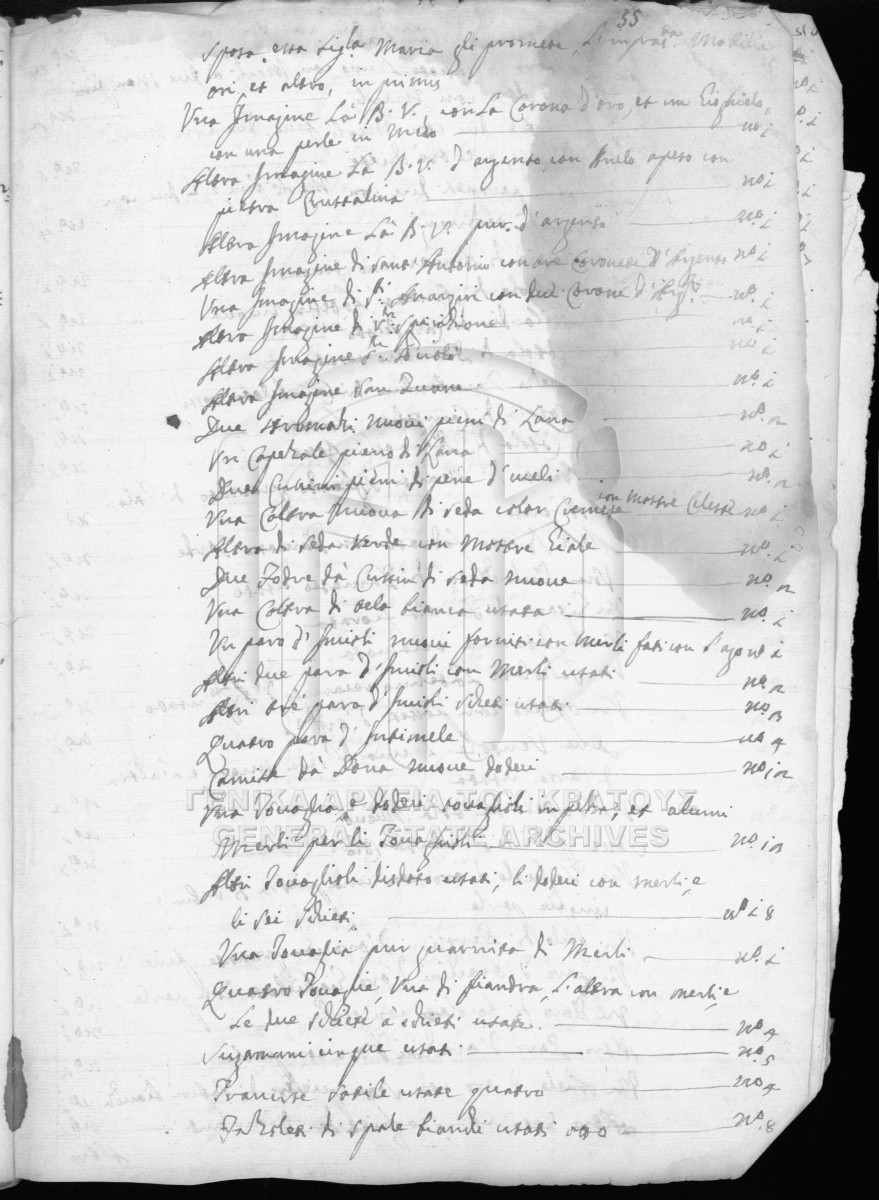 55
Sposa essa Sig.ra Maria gli promete, mobilia
ori, et altro, in primis
Una Imagine La B. V. con La Corona d'oro, et un
con una perla in mezo n.o 1
Altra Imagine La B. V. d'argento, con aperto con
pietra Cristalina n.o 1
Altra Imagine La B. V. pur d'argento n.o 1
Altra Imagine di Sant' Antonio con tre Corone d'Argento n.o 1
Una Imagine di con due Corone d'Arg.to n.o 1
Altra Imagine di S.n Spiridione n.o 1
Altra Imagine S.n Nicolò n.o 1
Altra Imagine San Zuane n.o 1
Due stramazi nuovi pieni di Lana n.o 2
Un Capezale pieno di Lana n.o 1
Due Cussini pieni di pene d'uceli n.o 2
Una Coltra nuova di seda color Cremese con mostre Celeste n.o 1
Altra di seda verde con mostre Giale n.o 1
Due Fodre da Cussini di seda nuove n.o 2
Una Coltra di tela bianca usata n.o 1
Un paro d' nuovi forniti con Merli fati con l'ago n.o 1
Altri due para d' con Merli usati n.o 2
Altri tre para d' schieti usati n.o 3
Quatro para d'Intimele n.o 4
Camise da Dona nuove dodeci n.o 12
Una Tovaglia e dodeci tovaglioli in peza, et alcuni
Merli per li Tovaglioli n.o 13
Altri Tovaglioli disdoto usati, li dodeci con merli, e
li sei schieti n.o 18
Una Tovaglia pur guarnita di Merli n.o 1
Quatro Tovaglie, Una di fiandra, L'altra con merli, e
Le due schiete usate n.o 4
Sugamani cinque usati n.o 5
Traverse sotile usate quatro n.o 4
Fazoleti di spale bianchi usati oto n.o 8
ΓΕΝΙΚΑ ΑΡΧΕΙΑ ΤΟΥ ΚΡΑΤΟΥΣ
GENERAL STATE ARCHIVES